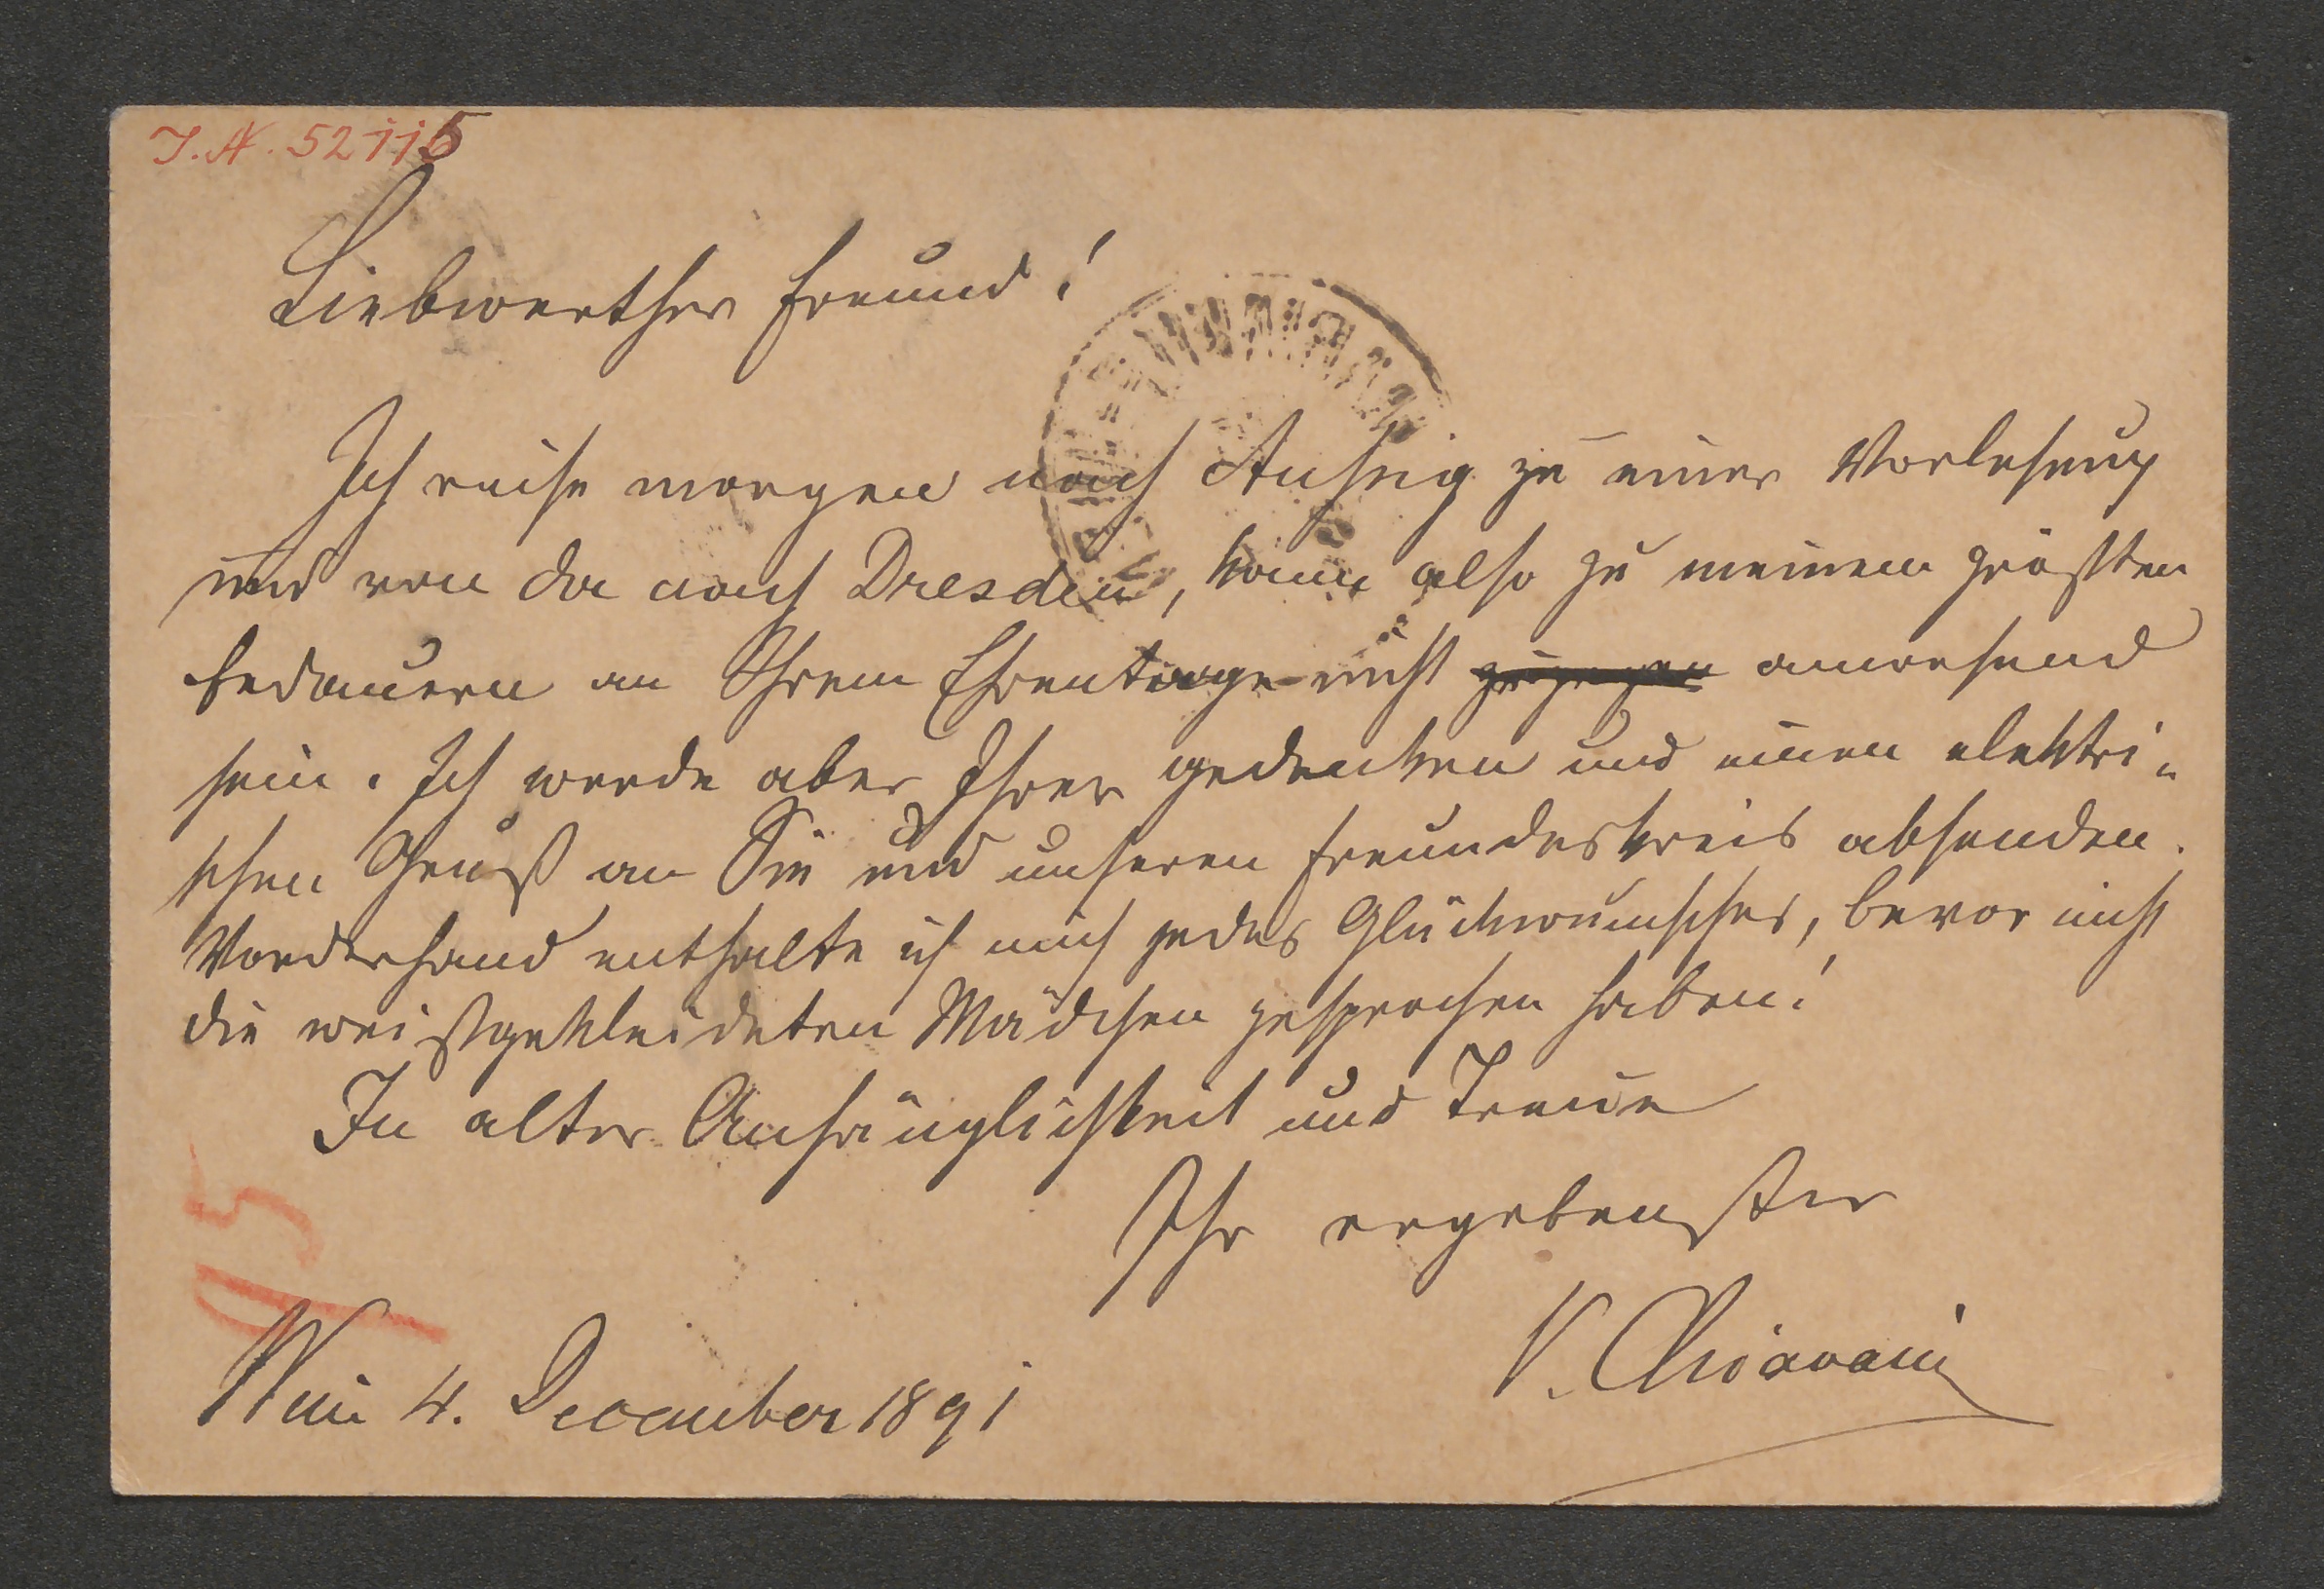 I.N. 52115
Liebwerther Freund!
Ich reise morgen nach Aussig zu einer Vorlesung
und von da nach Dresden, kann also zu meinem größten
Bedauern an Ihrem Ehrentage nicht zugegen anwesend
sein. Ich werde aber Ihrer gedenken und einen elektri-
schen Gruß an Sie und unseren Freundeskreis absenden.
Vorderhand enthalte ich mich jedes Glückwunsches, bevor nicht
die weißgekleideten Mädchen gesprochen haben!
In alter Anhänglichkeit und Treue
Ihr ergebenster
V. Chiavacci
Wien 4. December 1891
95